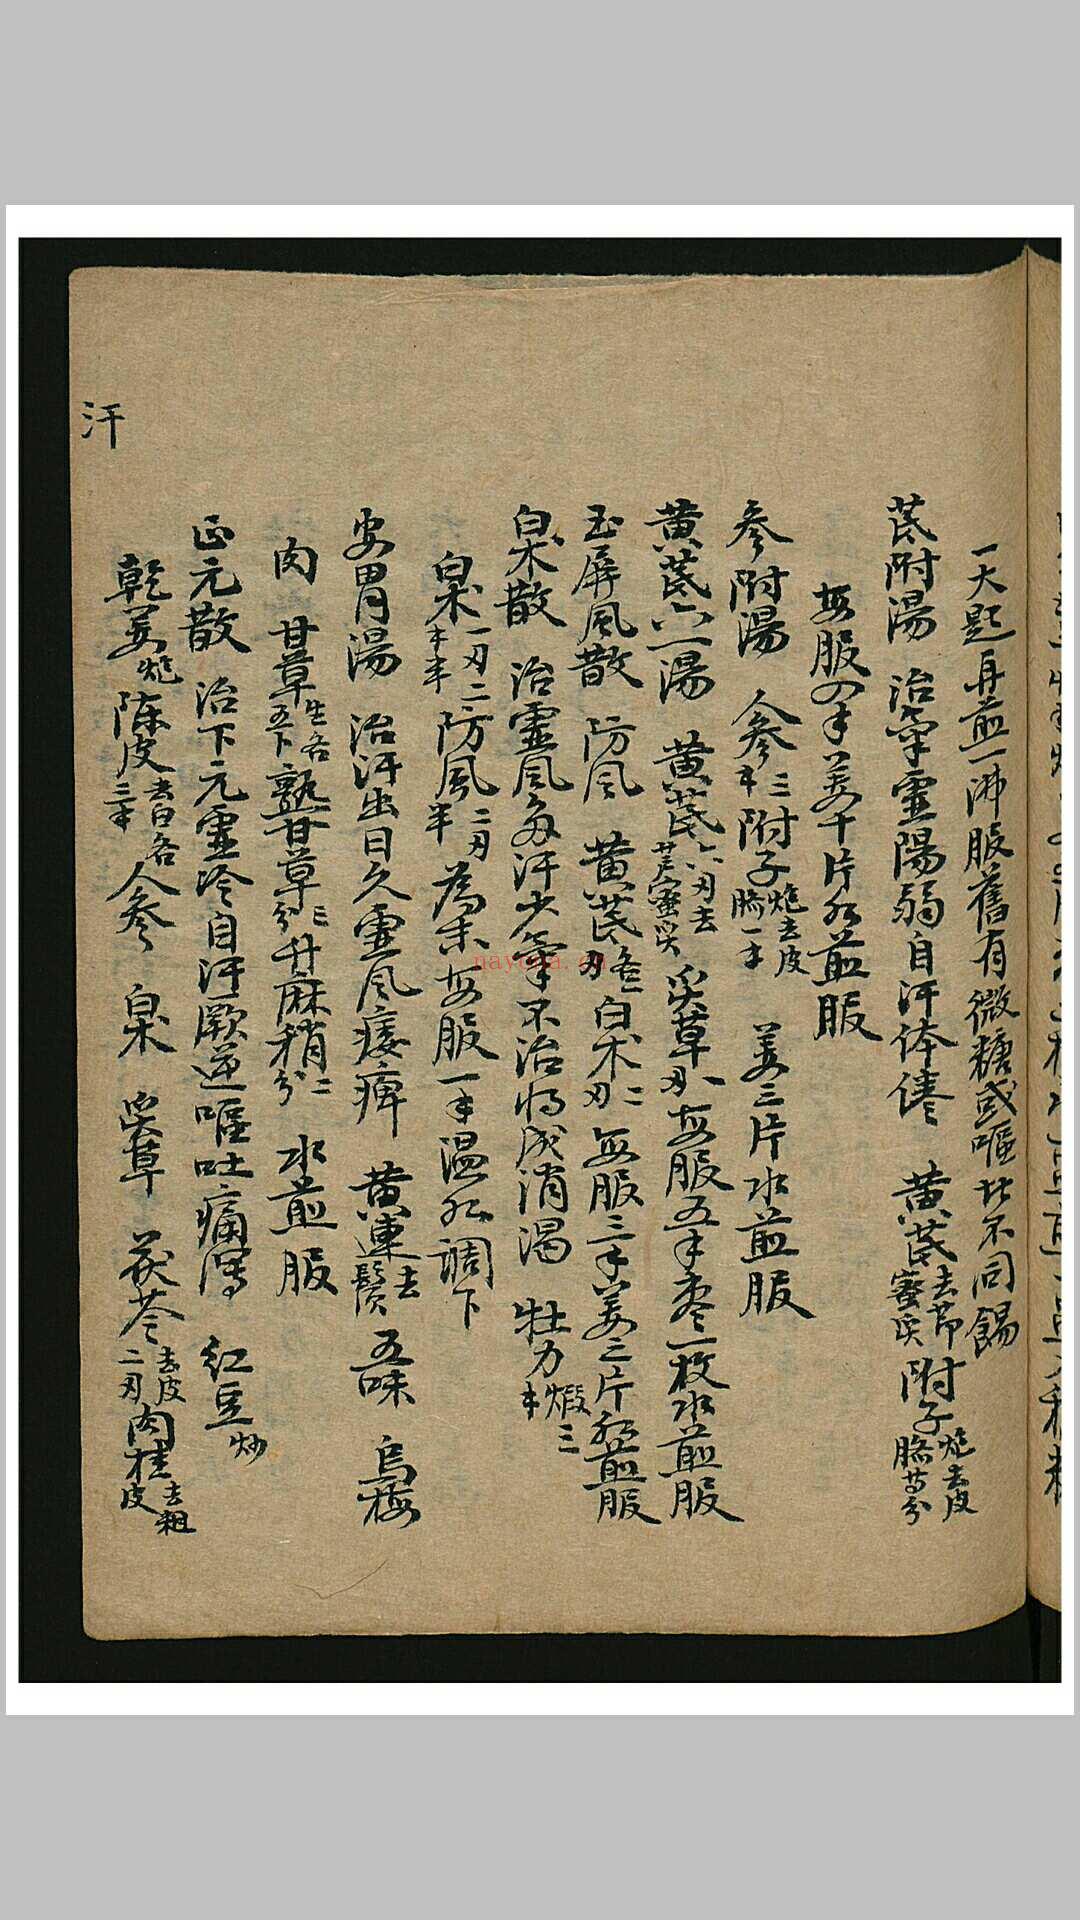 一大匙再煎一沸服舊有微糖或嘔者不同餳
芪附湯 治氣虛陽弱自汗体倦 黄芪去节蜜炙附子炮去皮臍等分
每服四𠦑姜十片水煎服
参附湯 人参三𠦑附子炮去皮臍一𠦑 姜三片水煎服
黄芪六一湯 黄芪六刄去芦蜜炙 炙草一刄每服五𠦑枣一枚水煎服
玉屏風散 防风 黄芪各一刄白术二刄每服三𠦑姜三片水煎服
白术散 治虛风多汗少氣不治將成消渴 牡力煅三𠦑
白术一刄二𠦑半防风二刄半為末每服一𠦑温水調下
安胃湯 治汗出日久虛风痿痺 黄連去鬚五味 烏梅
肉 甘草生各五下熟甘草三分升麻稍二分 水煎服
正元散 治下元虛冷自汗厥逆嘔吐痛瀉 红豆炒
乾姜炮陳皮去白各三𠦑人参 白术 炙草 茯苓去皮二刄肉桂去粗皮
汗